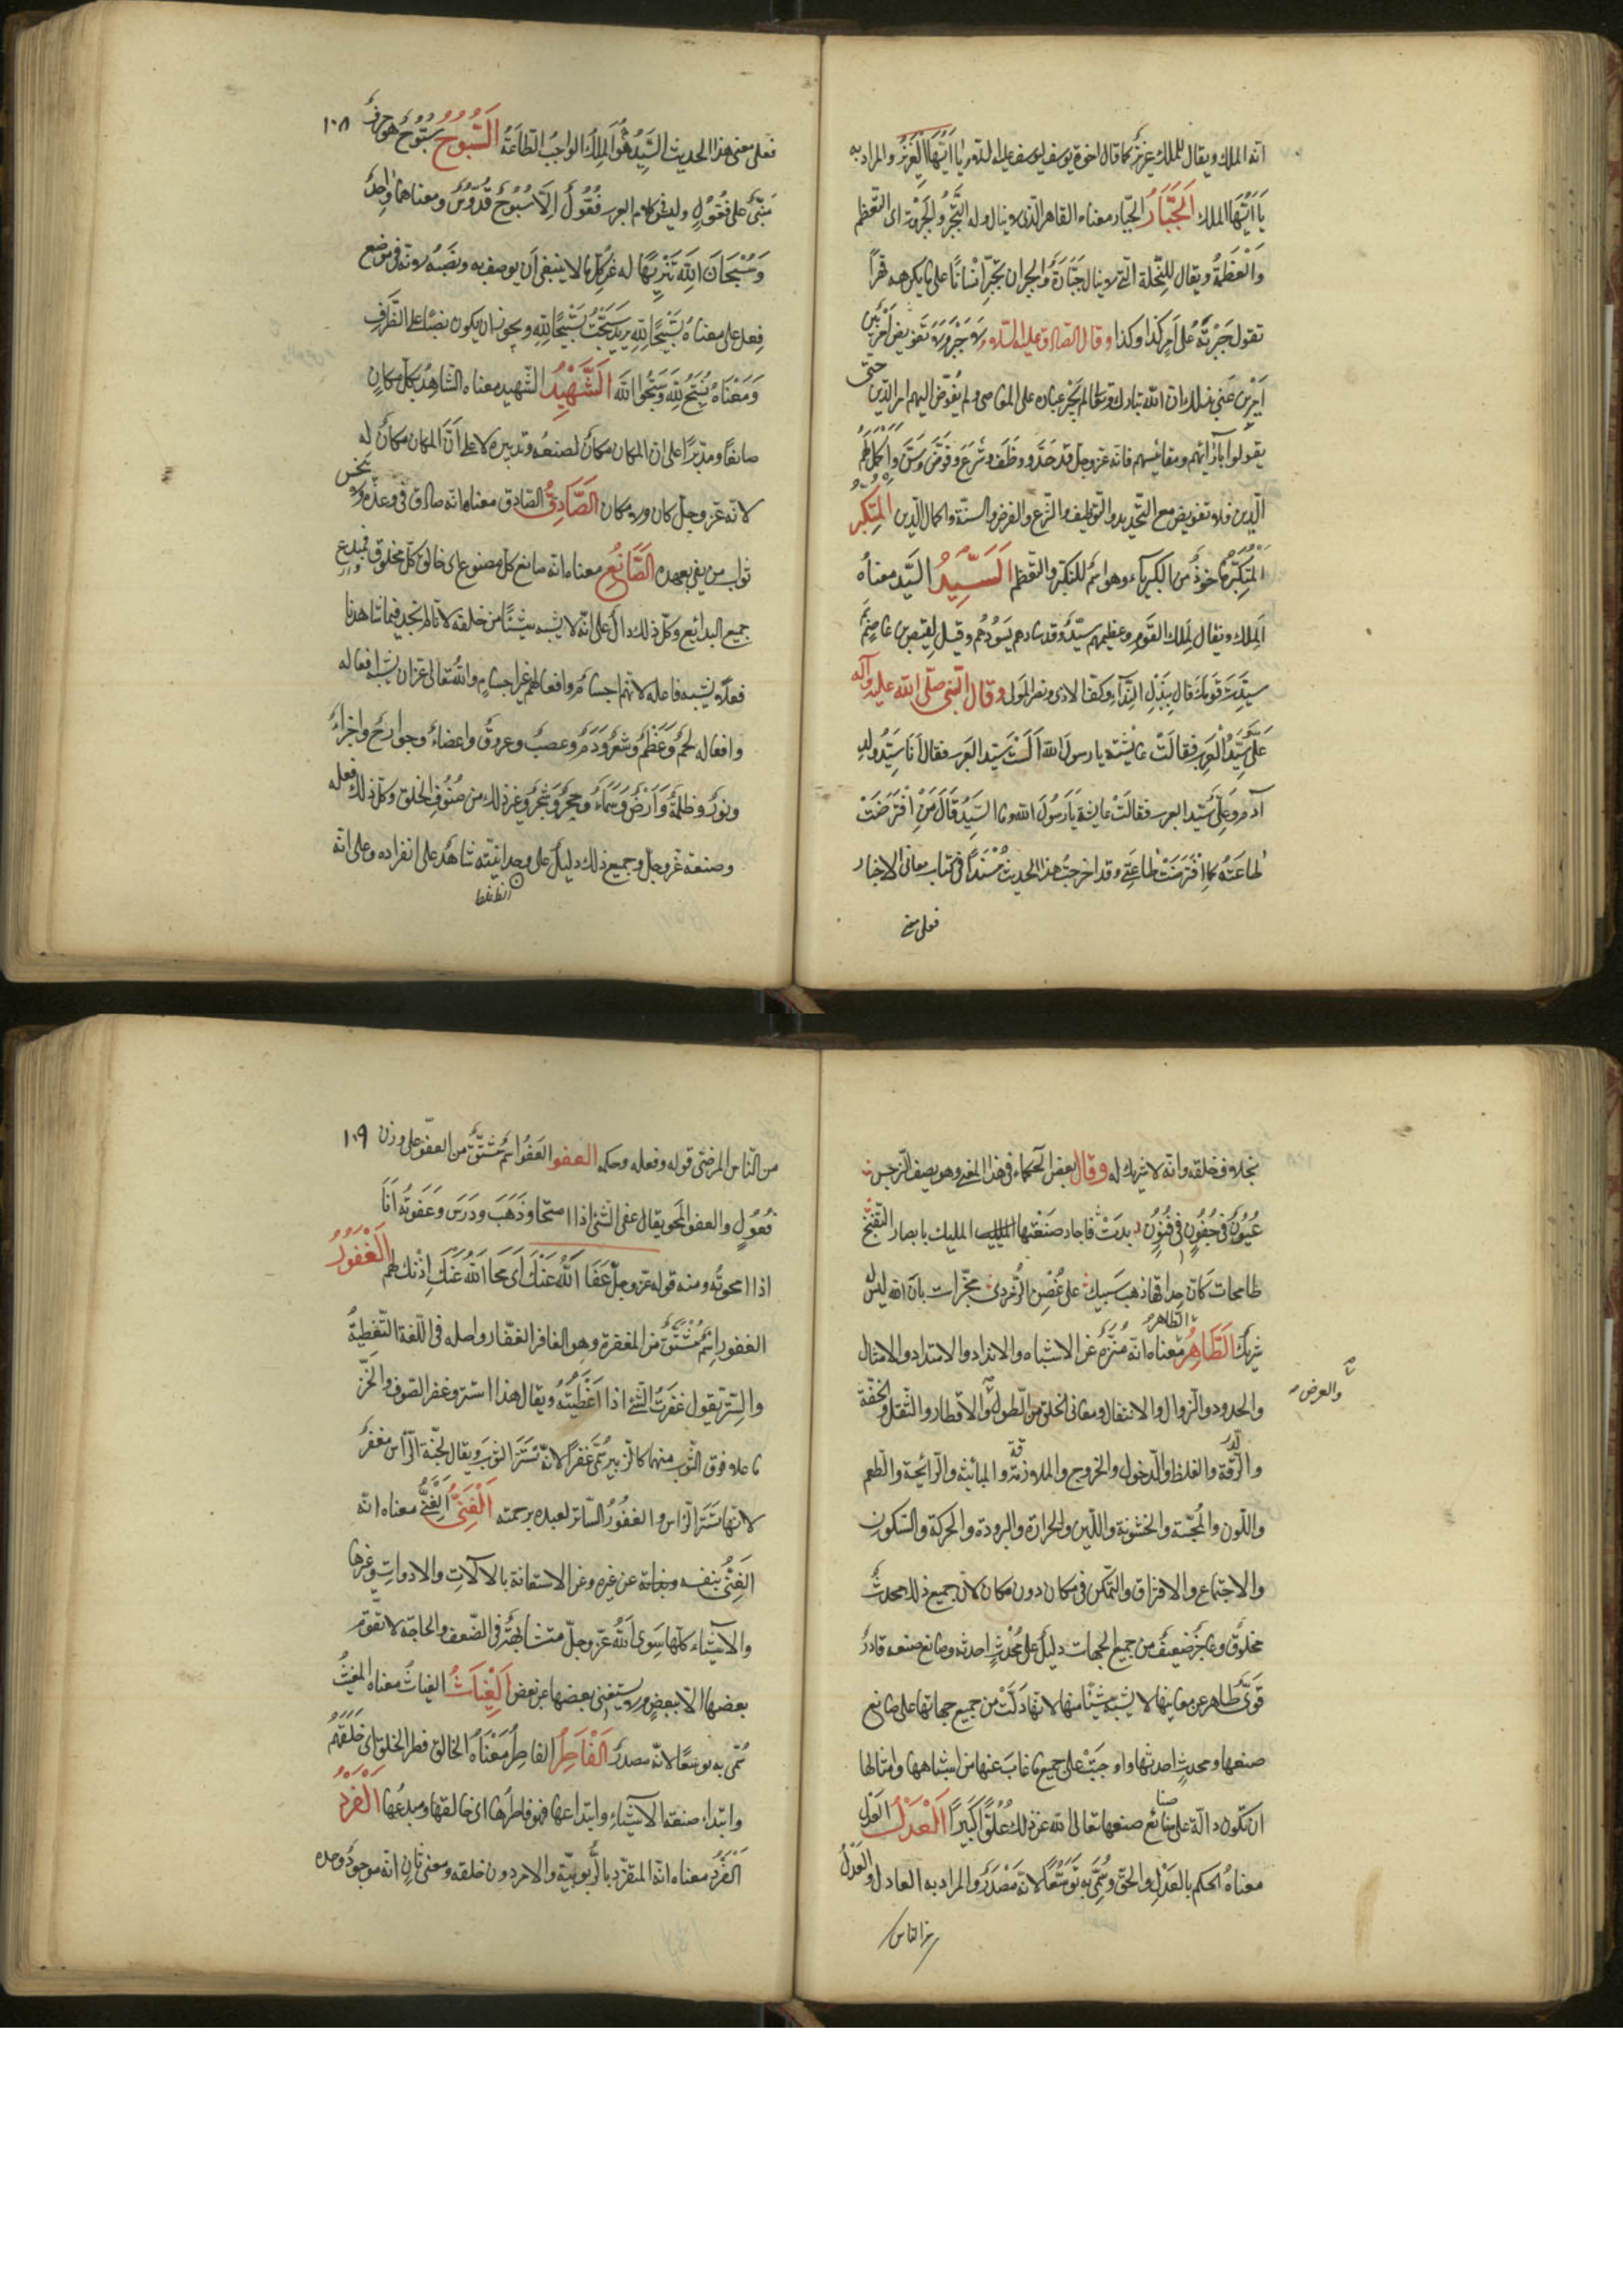 انه الملك ويقال للملك عزيز كما قال اخوة يوسف ليوسف عليه السلام يا اَيُّهَا الْعَزيزُ والمراد به
يا اَيُّهَا الملك اَلجَبَّارُ الجبّار معناه القاهر الذى لا ينال وله التَّجَبُّرُ والجَبَرُوْتُ اى التعظم
وَالْعَظَمَةُ ويقال للنّخلة الّتى لا ينال جَبَّارَةٌ والجبر ان تُجْبِرَ اِنْسَانًا على ما يكرهه قهرًا
تقول جَبَرْتُهُ على اَمرِ كذا وكذا وقال الصادق عليه السّلام لا جَبْرَ وَلا تَفويضَ بَل اَمْرٌ بَيْنَ
اَمْرَيْنِ عنى بذلك ان الله تبارك وتعالى لم يَجْبُر عباده على المعاصى ولم يُفَوّض اليهم امر الدّين حتى
يقولوا بآرائهم ومقائيسهم فانه عزوجل قد حَدَّ و وَظَفَ وَشَرَعَ وفَرَضَ وَسَنَّ وَاَكْمَلَ لَهُمُ
الّدين فلا تفويض مع التّحديد والتّوظيف والشّرع والفرض والسنّة واكمال الّدين اَلمُتَكَبِّرُ
اَلمُتَكَبِّرُ مأخوذٌ من الكبرياء وهو اسمٌ للتكبّر والتّعظم اَلسَّيِّدُ السَّيّد معناهُ
اَلملك ويقال لِملك القومِ وعظيمهم سيّدٌ وقد سادهم يَسُودُهم وقيل لِقيس بن عاصمٍ بِمَ
سُدْتَ قومكَ قال بِبَذْلِ النّدآءِ وكفّ الاذى ونصر المَولى وقال النبى صلّى الله عليه وآله
عَلىٌّ سَيِّدُ الْعَربِ فقالَتْ عايشة يا رسول الله اَلَسْتَ سيّد العَرب فقال اَنَا سَيِّدُ ولدِ
آدم وَعَلِىٌّ سَيّد العرب فقالَتْ عايشة يا رَسُولَ الله وما السَّيِّدُ قَالَ مَنِ افْتُرِضَتْ
طاعَتُهُ كما افْتُرِضَتْ طاعَتِى وقد اخرجتُ هذا الحديثَ مُسْنَدًا فى كتاب معانى الاخبار
فعلى معنى
١٠٨
فعلى معنى هذا الحديث السَّيِّدُ هُوَ المَلِكُ الواجِبُ الطّاعَةُ اَلسُّبُّوحُ سُبُّوحٌ هو حرفٌ
مَبْنِىٌّ على فُعُّولٍ وليس فى كلام العرب فُعُّولٌ اِلّا سُبُّوحٌ قُدُّوسٌ ومعناهما واحِدٌ
وَسُبْحَانَ اللهِ تَنْزِيهًا له عن كلّ ما لا ينبغى اَن يوصف به ونَصَبُهُ لانّه فى موضع
فعلٍ على معناهُ تَسْبِيْحًا لِلّهِ يريد سَبَّحْتُ تَسْبِيْحًا لِلّهِ ويجوز ان يكون نصبًا على الظَّرفِ
وَمَعْنَاهُ نُسَبِّحُ لِلّهِ وَسَبِّحُوا الله اَلشَّهِيْدُ الشّهيد معناه الشاهِدُ بكلّ مكانٍ
صانعًا ومدبّرًا على ان المكان مكانٌ لصنعه وتدبيره لا على اَنَّ المكان مكانٌ له
لانّه عزّوجلّ كان ولا مكان اَلصَّادِقُ الصّادق معناه انّه صادق فى وعده ولا يبخس
ثواب من يفى بعهده اَلصَّانِعُ معناه انّه صانع كلّ مصنوع اى خالق كلّ مخلوق ومبدع
جميع البدائع وكلّ ذلك دالٌّ على انّه لا يشبه شيئًا من خلقه لانّا لم نجد فيما شاهدنا
فعلًا يشبه فاعله لانّهم اجسامٌ وافعالهم غير اجسامٍ والله تعالى عن ان يشبه افعاله
وافعاله لحمٌ وعَظمٌ وشعرٌ ودَمٌ وعصبٌ وعروقٌ واعضاءٌ وجوارحٌ واجزاءٌ
ونورٌ وظلمةٌ وَاَرْضٌ وَسَمَاءٌ وحجرٌ وشَجَرٌ وغير ذلك من صُنُوفِ الخلق وكلّ ذلك فعله
وصنعه عزّوجلّ وجميع ذلك دليلٌ على وحدانيّته شاهدٌ على انفراده وعلى انّه
بخلاف خلقه وانّه لا شريك له وقال بعض الحكماء فى هذا المعنى وهو يصف النّرجس
عُيُونٌ فى جُفُونٍ فى فُنُونٍ بدَتْ فاجاد صَنْعَتها المليك بابصار التّغنّج
طامحات كاَنّ حِداقَها ذهب سَبيك على غُصْنِ الزُّمرّدِ مخبّرات بانّ الله ليس له
شريك اَلطَّاهِرُ معناه انّه متنزّهٌ عن الاشباه والانداد والاضداد والامثال
والحدود والزوال والانتقال ومعانى الخلق من الطول والاقطار والثّقل والخفّة
والعرض
والرّقة والغلظ والدخول والخروج والملازقة والمباينة والرّائحة والطّعم
واللّون والمجسّة والخشونة واللّين والحرارة والبرودة والحركة والسّكون
والاجتماع والافتراق والتّمكن فى مكان دون مكان لانّ جميع ذلك محدثٌ
مخلوق وعاجز ضعيفٌ من جميع الجهات دليلٌ على مُحْدِثٍ احدثه وصانع صنعه قادرٌ
قوىٌّ طاهر عن معانيها لا يشبه شيئًا منها لانّها دلّتْ من جميع جهاتها على صانع
صنعها ومحدثٍ احدثها واوجَبَتْ على جميع ما غابَ عنها من اشباهها وامثالها
ان تكون دالّة على صانع صنعها تعالى الله عن ذلك عُلُوًّا كَبِيرًا اَلْعَدْلُ العَدْل
معناهُ الحكم بالعَدْلِ والحقّ وسُمِّىَ به تَوَسُّعًا لانّه مَصْدَرٌ والمراد به العادل والعَدْلُ
من الناس
١٠٩
من النّاس المرضىّ قوله وفعله وحكمه العفو العَفُوُّ اسمٌ مُشْتَقٌّ من العفوّ على وزن
فُعُولٍ والعفو المحو يقال عفى الشّئ اذا امتحا وذَهَبَ ودَرَسَ وَعَفَوْتُهُ اَنَا
اذا محوتُه ومنه قوله عزّوجلّ عَفَا اللهُ عَنْكَ اى مَحَا الله عَنْكَ اِذْنَكَ لهم اَلغَفُورُ
الغفور اِسْمٌ مُشْتَقٌّ من المغفرة وهو الغافر الغفّار واصله فى اللّغة التّغطية
والسِّتر تقول غفَرْتُ الشَّئ اذا غَطَّيْتَهُ ويقال هذا استر وغفر الصّوف والخَزّ
ما علا فوق الثّوب منهما كالزئبر سُمِّىَ غَفرًا لانّه سَتَرَ الثوبَ ويقال لجُنّة الرّأس مغفرٌ
لانّها تستر الرّاس والغفُورُ السّاتر لعبده برحمته اَلْغَنِىُّ اَلغَنِىُّ معناه انّه
الغَنِىُّ بنفسه عن غيره وعن الاستعانة بالآلات والادوات وغيرها
والاشيآء كلّها سِوى اللهُ عزّوجلّ متشابهةٌ فى الضّعف والحاجة لا تقوّم
بعضها الّا ببعضٍ ولا يستغنى بعضها عن بعض اَلغِيَاثُ الغياثُ معناه المغيثُ
سُمّى به توسّعًا لانّه مصدرٌ اَلْفَاطِرُ الفاطِرُ مَعْنَاهُ الخالق فطر الخلق اى خَلَقَهُم
وابتداء صنعة الاشيآءِ وابتداعها فهو فاطرُها اى خالقها ومبدعُها اَلْفَرْدُ
اَلْفَرْدُ معناه انّه المتفرّد بالرّبوبيّة والامر دون خلقه ومعنى ثانٍ انّه موجودٌ وحده